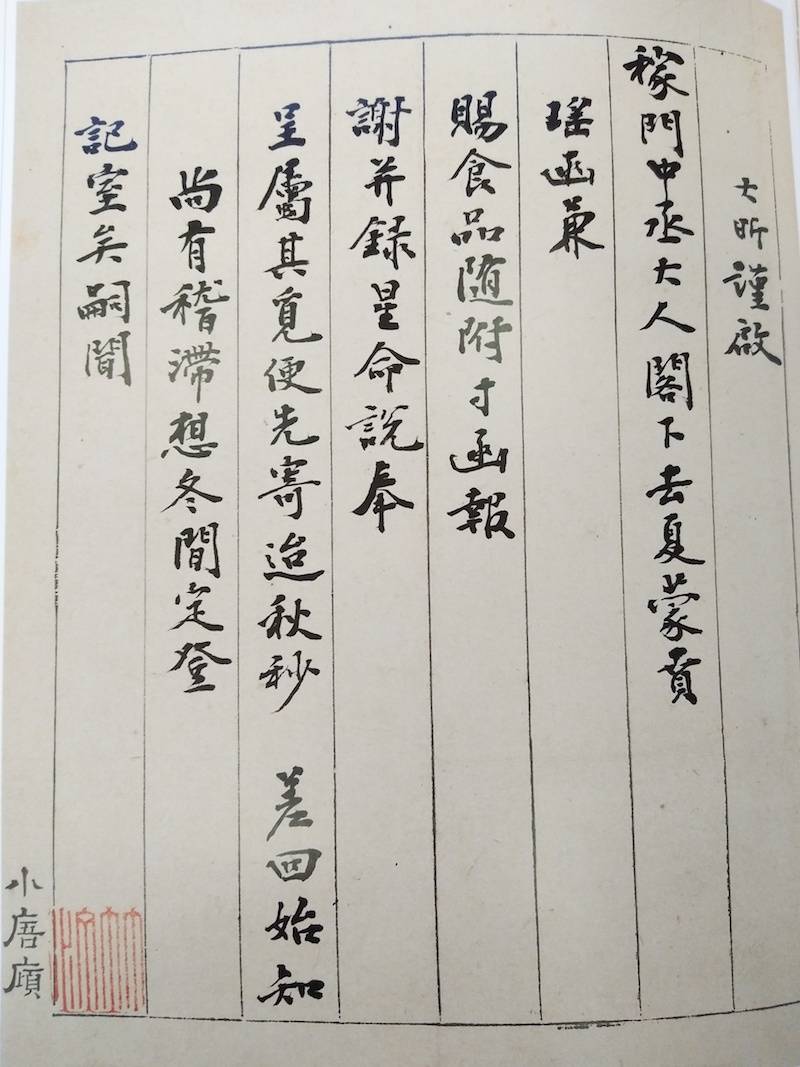 大昕謹啟
稼門中丞大人閣下去夏蒙賁
瑤函兼
賜食品隨附寸函報
謝并錄星命說奉
呈屬其覓便先寄迨秋杪 差回始知
尚有稽滯想冬間定登
記室矣嗣聞
小唐